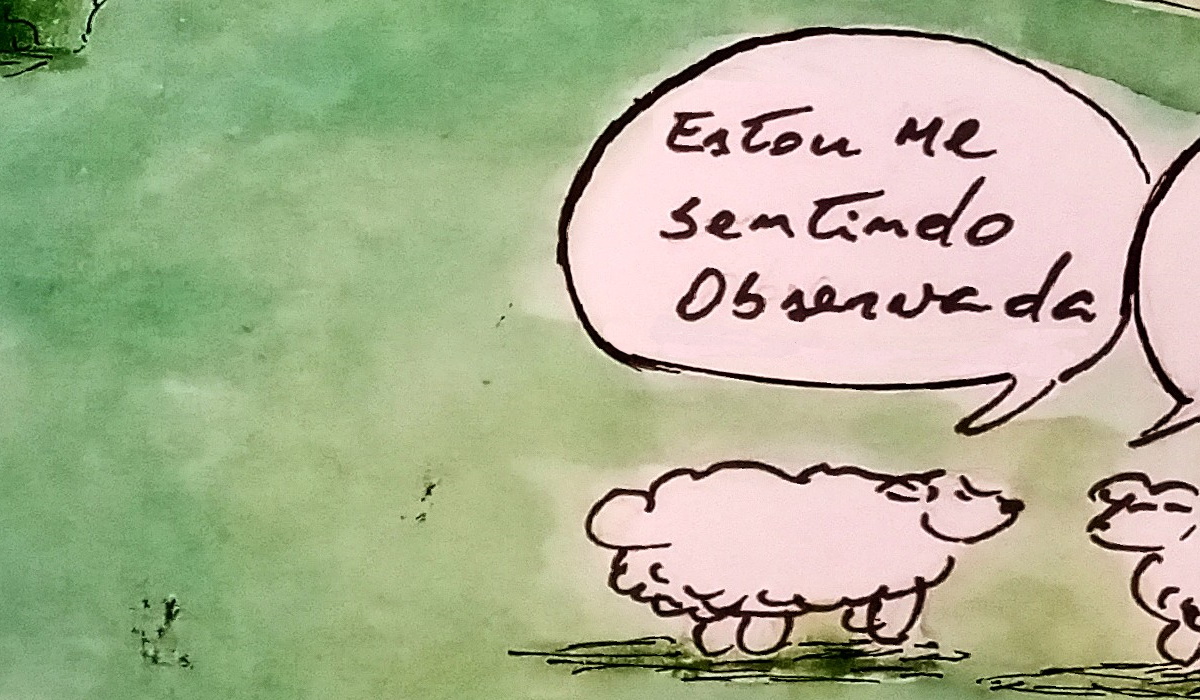 Estou me
sentindo
Observada